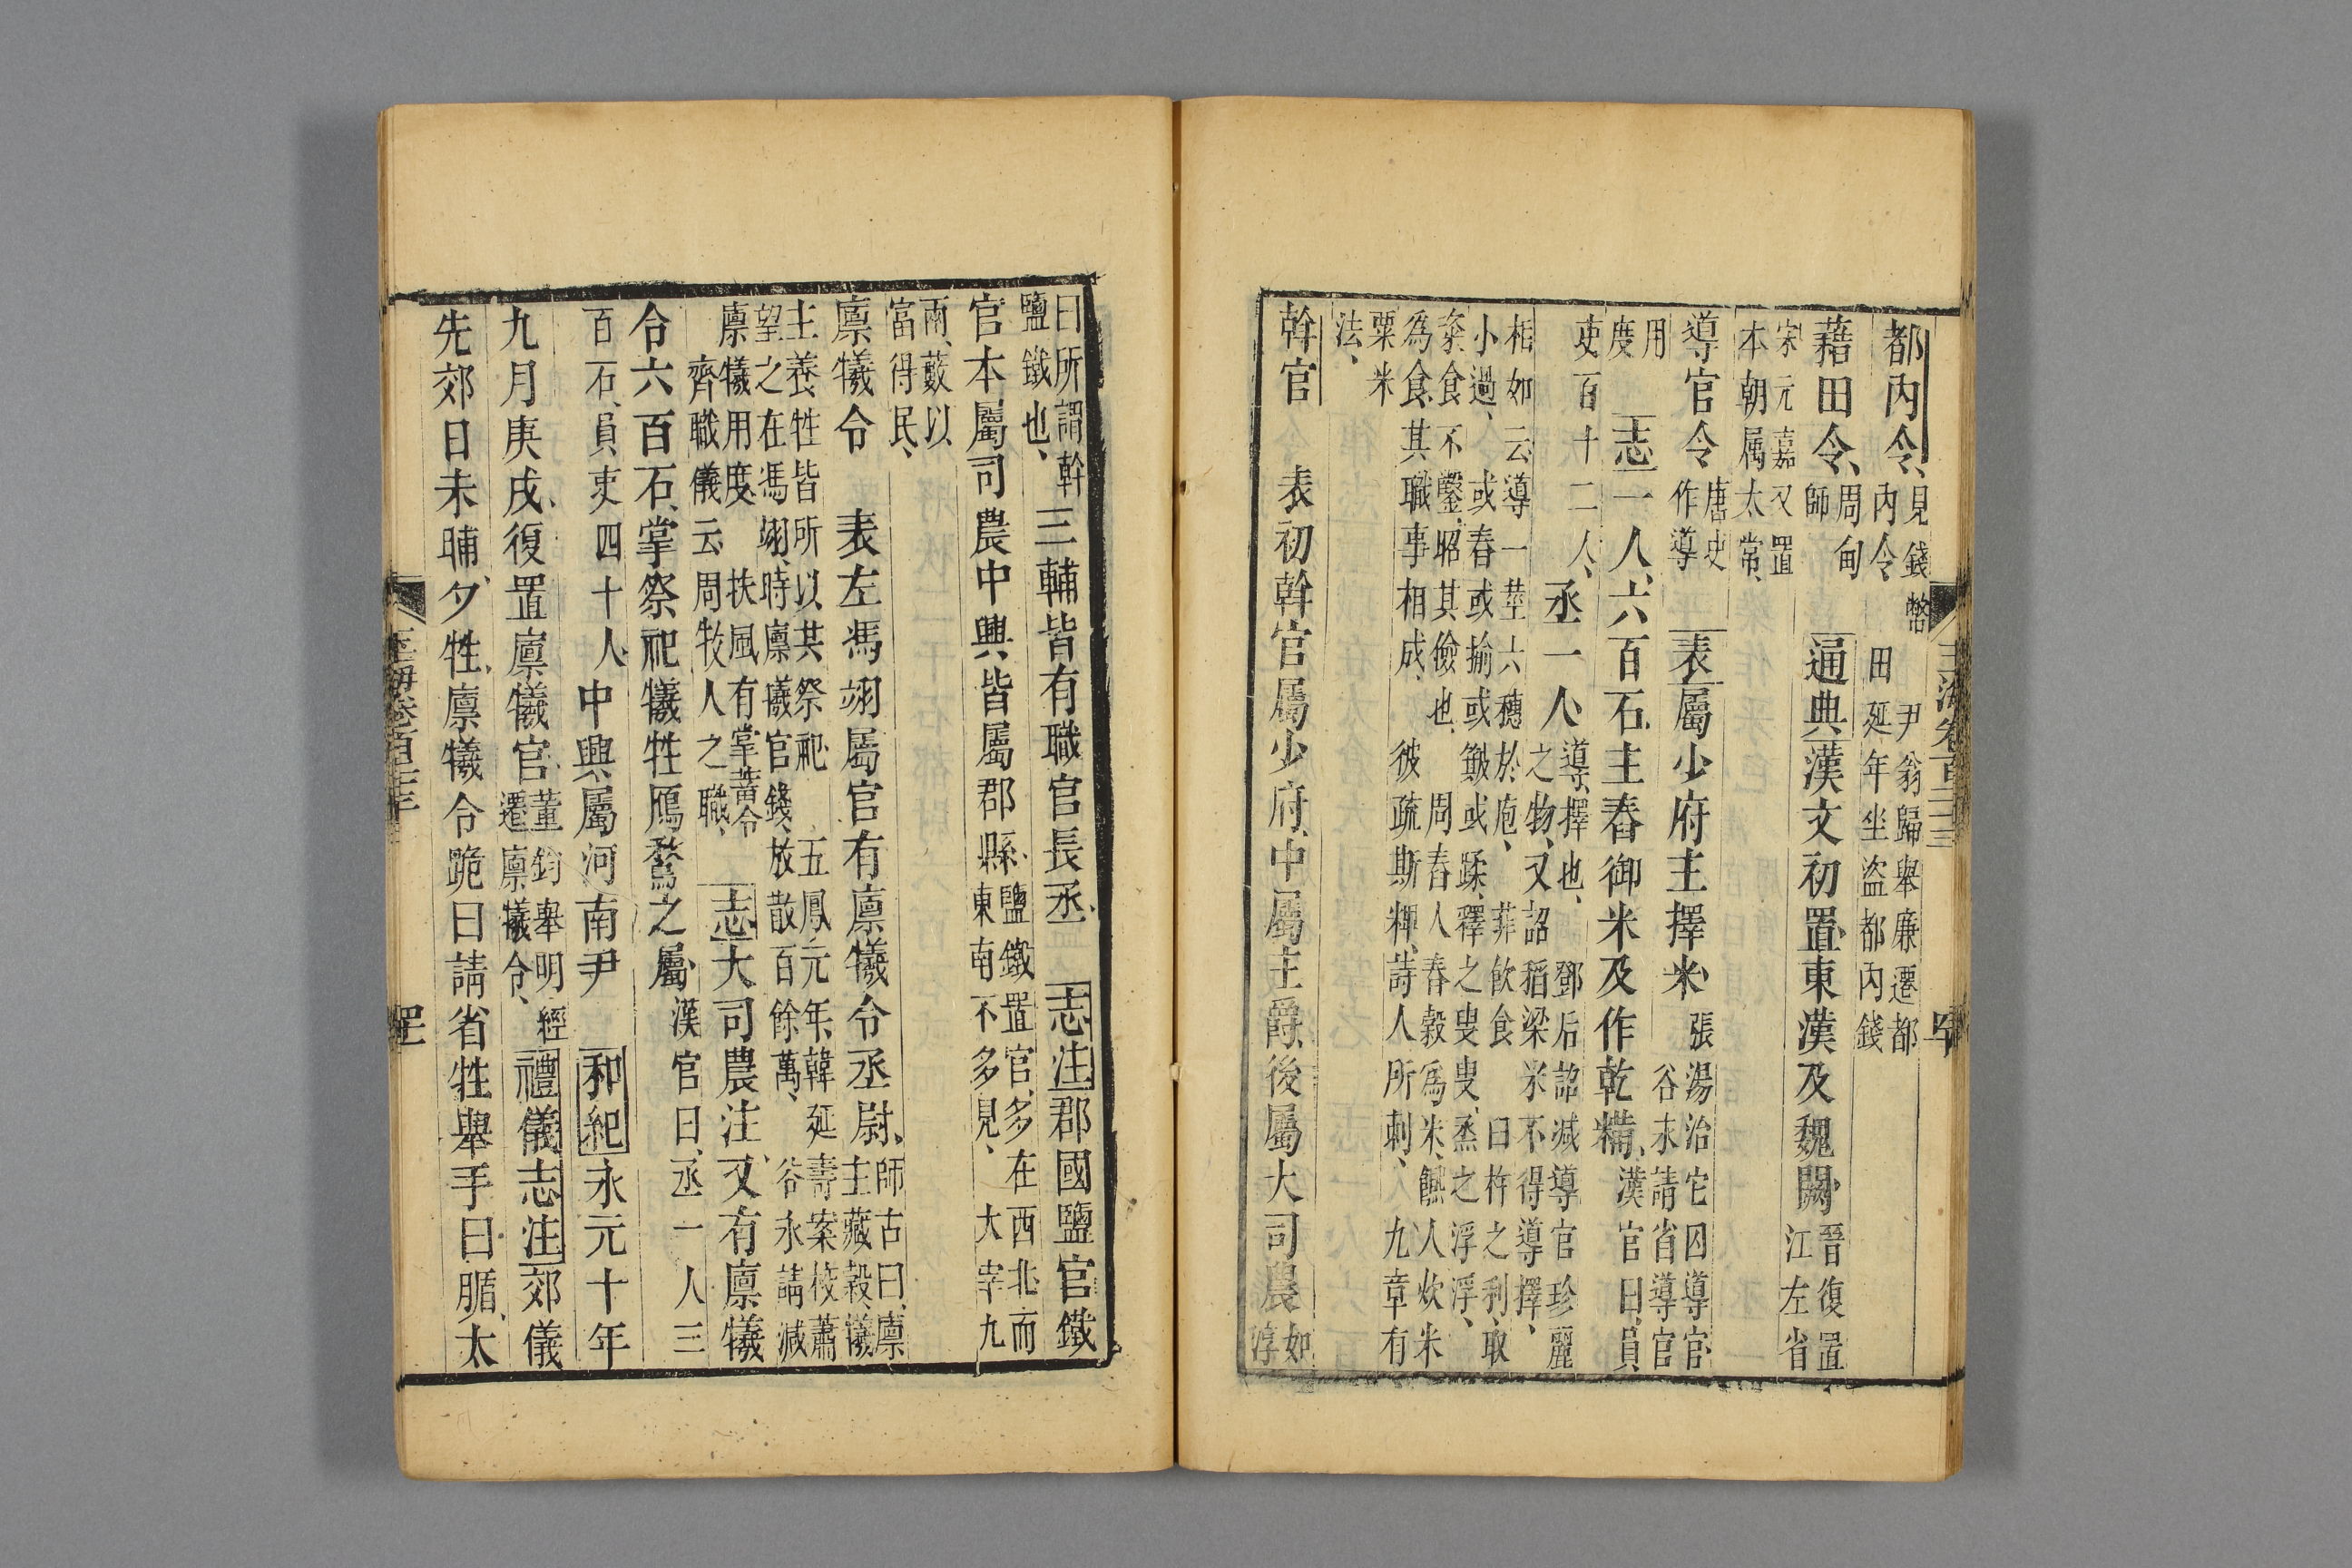 玉海卷百二十三
都内令、見錢幣 尹翁歸舉廉遷都
内令、田延年坐盜都内錢
藉田令、周甸師 通典漢文初置東漢及魏闕晉復置
江左省
宋元嘉又置
本朝属太常、
導官令 唐史作導 表屬少府主擇米 張湯治它囚導官
谷永請省導官
用度 志一人、六百石、主舂御米及作乾糒、漢官曰、員
吏百十二人、丞一人、導、擇也、鄧后詔減導官珍麗
之物、又詔稻粱米不得導擇、
相如云導一莖六穗於庖、菲飲食 曰杵之利、取
小過、或舂或揄或簸或蹂、釋之叟叟、烝之浮浮、
粢食不鑿、昭其儉也、周舂人舂穀爲米、饎人炊米
爲食、其職事相成、彼疏斯粺、詩人所刺、九章有
粟米
法、
幹官 表初幹官屬少府、中屬主爵、後屬大司農 如
淳
曰所謂幹
鹽鐵也、三輔皆有職官長丞 志注郡國鹽官鐵
官本屬司農中興皆屬郡縣、鹽鐵置官、多在西北、而
東南不多見、大宰九
兩、藪以
富得民、
廩犧令 表左馮翊屬官有廩犧令丞尉、師古曰、廩
主藏穀、犧
主養牲皆所以共祭祀 五鳳元年、韓延壽案校蕭
望之在馮翊、時廩犧官錢、放散百餘萬、谷永請減
廩犧用度、扶風有掌蓄令
齊職儀云、周牧人之職、志大司農注、又有廩犧
令六百石、掌祭祀犧牲鴈鶩之屬、漢官曰、丞一人三
百石、員吏四十人、中興屬河南尹 和紀永元十年
九月庚戌、復置廩犧官、董鈞舉明經
遷廩犧令、禮儀志注郊儀
先郊日未晡夕牲、廩犧令跪曰請省牲舉手曰腯、太